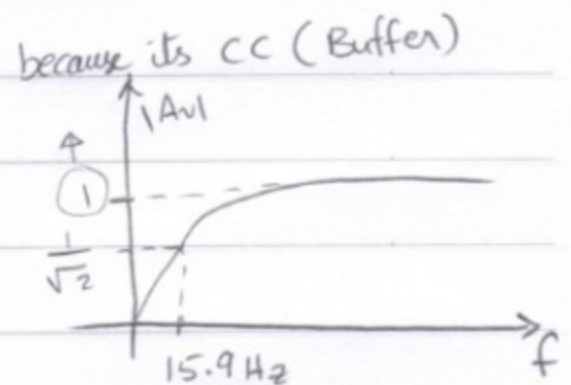 because its CC (Buffer)
|Av|
1
1/√2
15.9 Hz
f